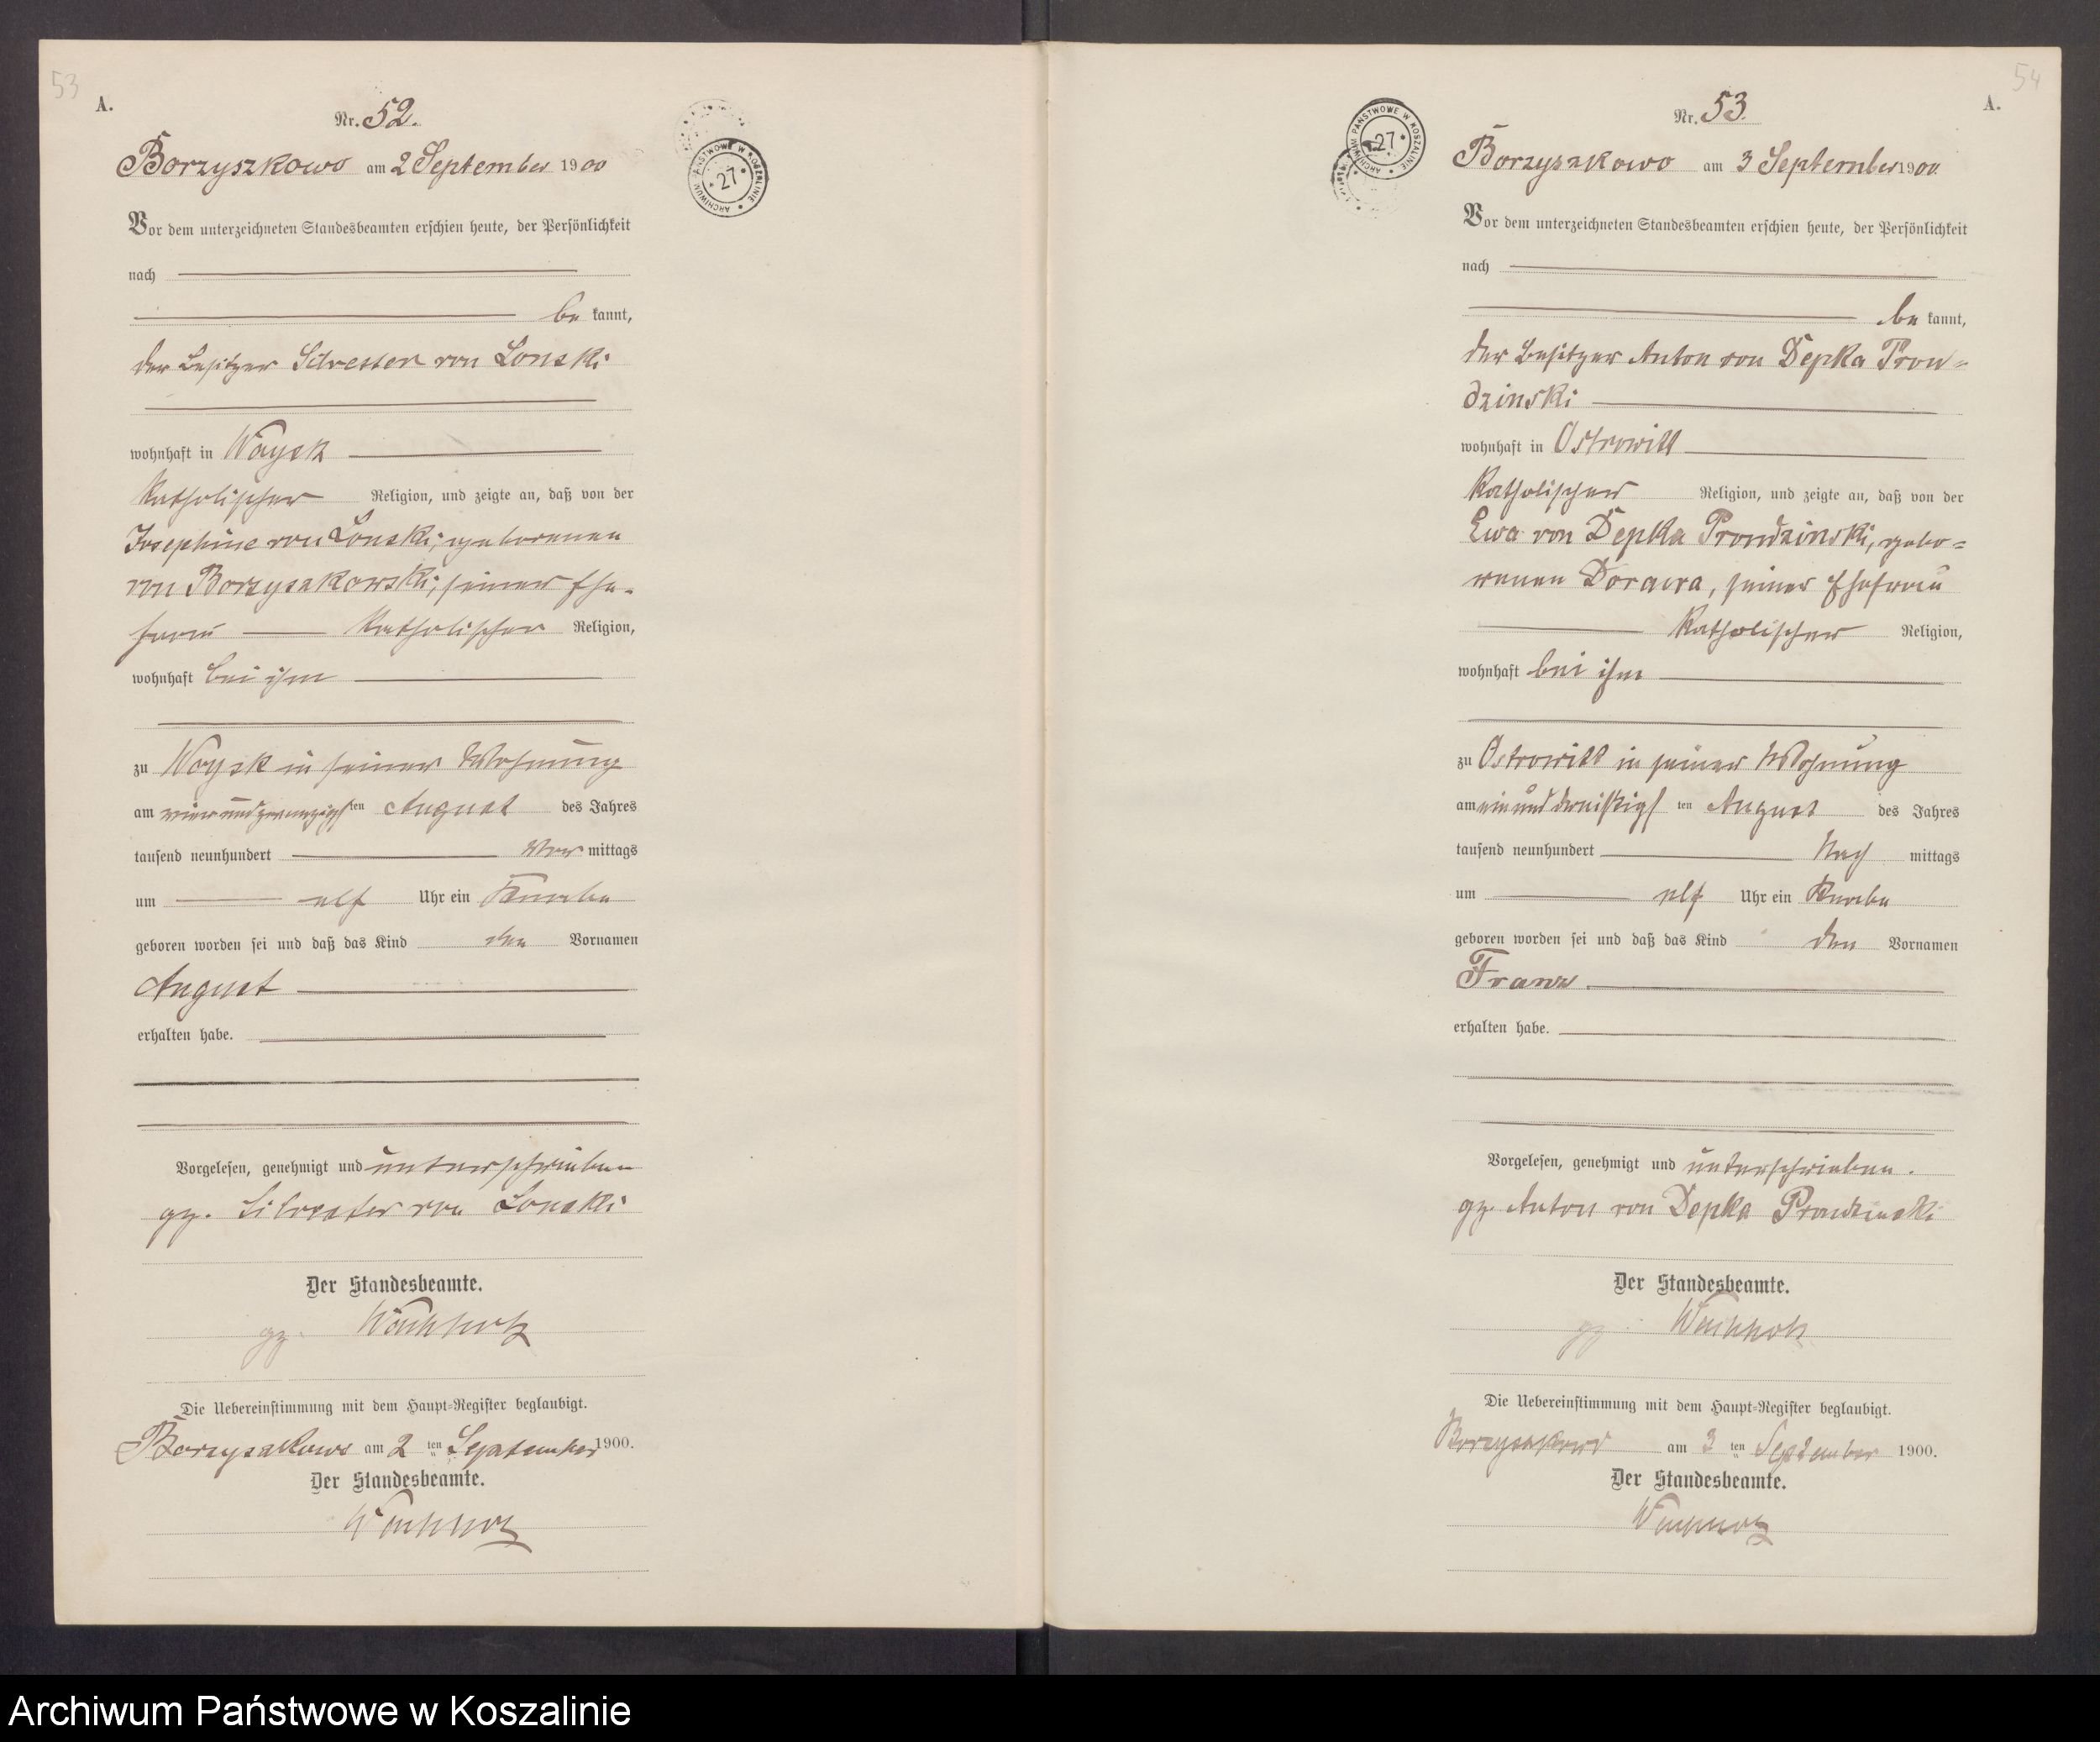 53
A.
Nr. 52.
Borzyszkowo am 2 September 1900
Vor dem unterzeichneten Standesbeamten erschien heute, der Persönlichkeit
nach
be kannt,
der Besitzer Silvester von Lonski
wohnhaft in Woysk
katholischer Religion, und zeigte an, daß von der
Josephine von Lonski, geborenen
von Borzyszkowski, seiner Ehe-
frau katholischer Religion,
wohnhaft bei ihm
zu Woysk in seiner Wohnung
am vierundzwanzigsten August des Jahres
tausend neunhundert Vor mittags
um elf Uhr ein Knabe
geboren worden sei und daß das Kind den Vornamen
August
erhalten habe.
Vorgelesen, genehmigt und unterschrieben
gz. Silvester von Lonski
Der Standesbeamte.
gz.
Die Uebereinstimmung mit dem Haupt-Register beglaubigt.
Borzyszkowo am 2 ten September 1900.
Der Standesbeamte.
ARCHIWUM PAŃSTWOWE W KOSZALINIE
* 27 *
54
A.
Nr. 53.
Borzyszkowo am 3 September 1900.
Vor dem unterzeichneten Standesbeamten erschien heute, der Persönlichkeit
nach
be kannt,
der Besitzer Anton von Depka Pron-
dzinski
wohnhaft in Ostrowitt
katholischer Religion, und zeigte an, daß von der
Ewa von Depka Prondzinski, gebo-
renen Dorawa, seiner Ehefrau
katholischer Religion,
wohnhaft bei ihm
zu Ostrowitt in seiner Wohnung
am einunddreißigs ten August des Jahres
tausend neunhundert Nach mittags
um elf Uhr ein Knabe
geboren worden sei und daß das Kind den Vornamen
Franz
erhalten habe.
Vorgelesen, genehmigt und unterschrieben.
gz. Anton von Depka Prondzinski
Der Standesbeamte.
gz.
Die Uebereinstimmung mit dem Haupt-Register beglaubigt.
Borzyszkowo am 3 ten September 1900.
Der Standesbeamte.
ARCHIWUM PAŃSTWOWE W KOSZALINIE
* 27 *
Archiwum Państwowe w Koszalinie